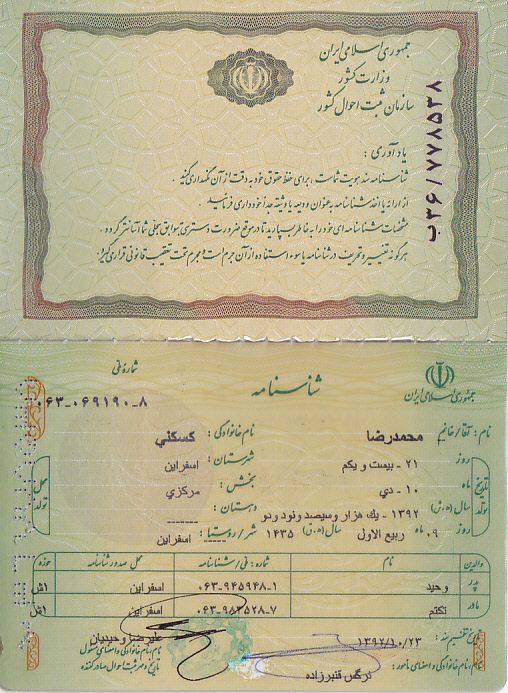 جمهوری اسلامی ایران
وزارت کشور
سازمان ثبت احوال کشور
ب۳۶/۷۷۸۵۳۸
یادآوری :
شناسنامه سند هویت شماست ، برای حفظ حقوق خود به دقت از آن نگهداری کنید .
از ارائه یا اخذ شناسنامه به عنوان ودیعه یا وثیقه جداً خودداری فرمائید .
مشخصات شناسنامه ای خود را به خاطر بسپارید تا در موقع ضرورت دسترسی بسوابق سجلی شما آسانتر گردد .
هرگونه تغییر و تحریف در شناسنامه یا سوء استفاده از آن جرم است و مجرم تحت تعقیب قانونی قرار می گیرد .
جمهوری اسلامی ایران
شناسنامه
شماره ملی
۰۶۳-۰۶۹۱۹۰-۸
نام : آقا/خانم : محمدرضا
نام خانوادگی : کسکنی
تاریخ تولد
روز ۲۱ - بیست و یکم
ماه ۱۰ - دی
سال(ه.ش) ۱۳۹۲ - یك هزار وسیصد ونود ودو
روز ۰۹ ماه ربیع الاول سال(ه.ق) ۱۴۳۵
محل تولد
شهرستان : اسفراین
بخش : مرکزی
دهستان : -------
شهر/روستا : اسفراین
والدین نام شماره : ملی/شناسنامه محل صدور شناسنامه حوزه
پدر وحید ۰۶۳-۹۴۵۹۴۸-۱ اسفراین
مادر تکتم ۰۶۳-۹۵۲۵۲۸-۷ اسفراین
تاریخ تنظیم سند : ۱۳۹۲/۱۰/۲۳
علیرضا وحیدیان
نام، نام خانوادگی و امضای مامور :
نرگس قنبرزاده
نام، نام خانوادگی و امضای مسئول
تاریخ و مهر ثبت احوال صادرکننده